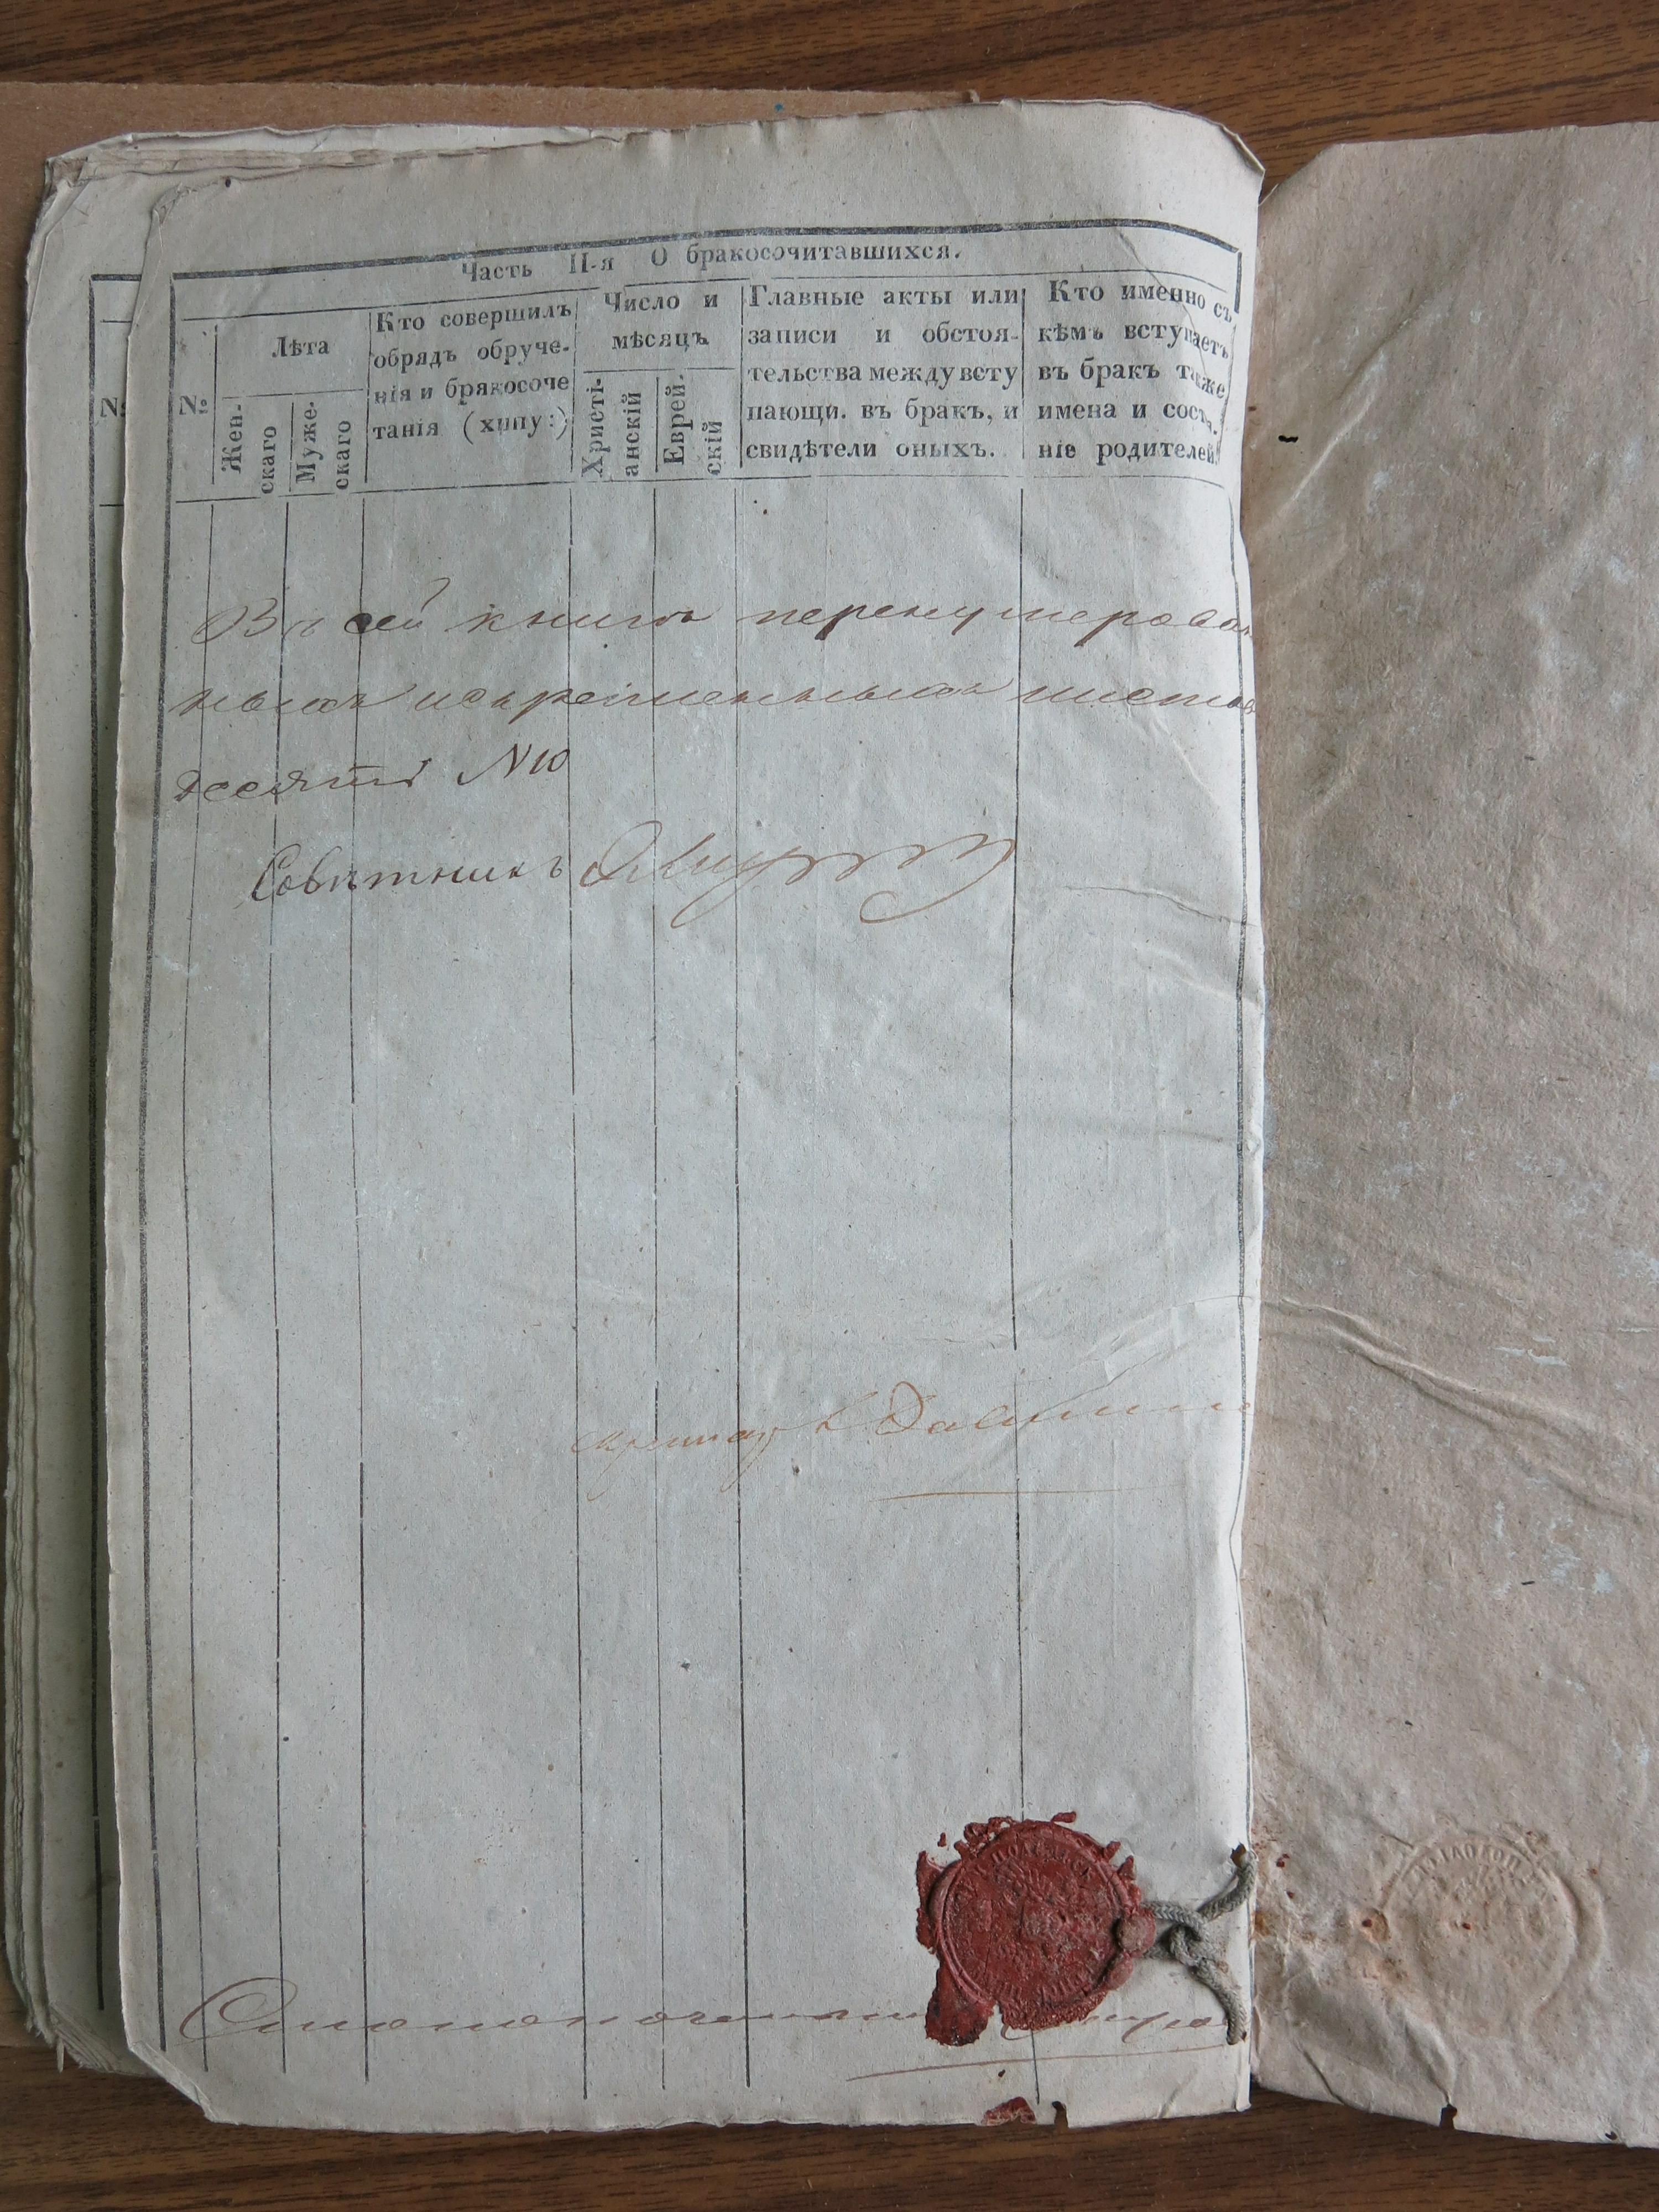 Часть II-я О бракосочитавшихся.
№
Лѣта
Жен-
скаго
Муже-
скаго
Кто совершилъ
обрядъ обруче-
нія и бракосоче
танія (хипу:)
Число и
мѣсяцъ
Христі-
анскій
Еврей-
скій
Главные акты или
записи и обстоя-
тельства между всту
пающи. въ бракъ, и
свидѣтели оныхъ.
Кто именно съ
кѣмъ вступаетъ
въ бракъ также
имена и состо.
ніе родителей.
Въ сей книгѣ перенумерован
ныхъ искрепленныхъ листовъ
десять N10
Совѣтникъ